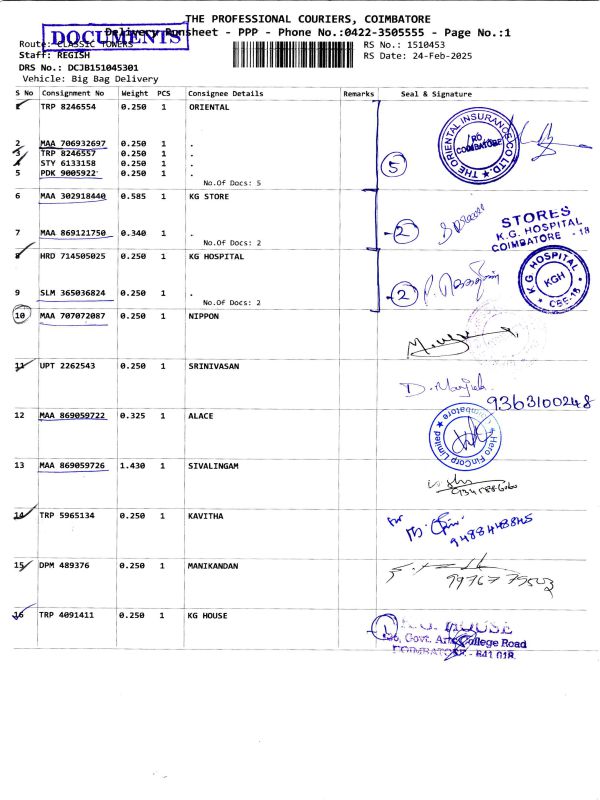 THE PROFESSIONAL COURIERS, COIMBATORE
DOCUMENTS
Delivery Runsheet - PPP - Phone No.:0422-3505555 - Page No.:1
Route: CLASSIC TOWERS
RS No.: 1510453
Staff: REGISH
RS Date: 24-Feb-2025
DRS No.: DCJB151045301
Vehicle: Big Bag Delivery
S No Consignment No Weight PCS Consignee Details Remarks Seal & Signature
1 TRP 8246554 0.250 1 ORIENTAL
2 MAA 706932697 0.250 1 .
3 TRP 8246557 0.250 1 .
4 STY 6133158 0.250 1 .
5 PDK 9005922 0.250 1 .
No.Of Docs: 5
5
THE ORIENTAL INSURANCE CO LTD.
RO
COIMBATORE
6 MAA 302918440 0.585 1 KG STORE
7 MAA 869121750 0.340 1 .
No.Of Docs: 2
2
STORES
K.G. HOSPITAL
COIMBATORE - 18
8 HRD 714505025 0.250 1 KG HOSPITAL
9 SLM 365036824 0.250 1 .
No.Of Docs: 2
2
K G HOSPITAL
KGH
CBE-18
10 MAA 707072087 0.250 1 NIPPON
11 UPT 2262543 0.250 1 SRINIVASAN
9363100248
12 MAA 869059722 0.325 1 ALACE
Hero FinCorp Limited
Coimbatore
13 MAA 869059726 1.430 1 SIVALINGAM
14 TRP 5965134 0.250 1 KAVITHA
9488448845
15 DPM 489376 0.250 1 MANIKANDAN
16 TRP 4091411 0.250 1 KG HOUSE
1
K.G. HOUSE
Govt. Arts College Road
COIMBATORE - 641 018.